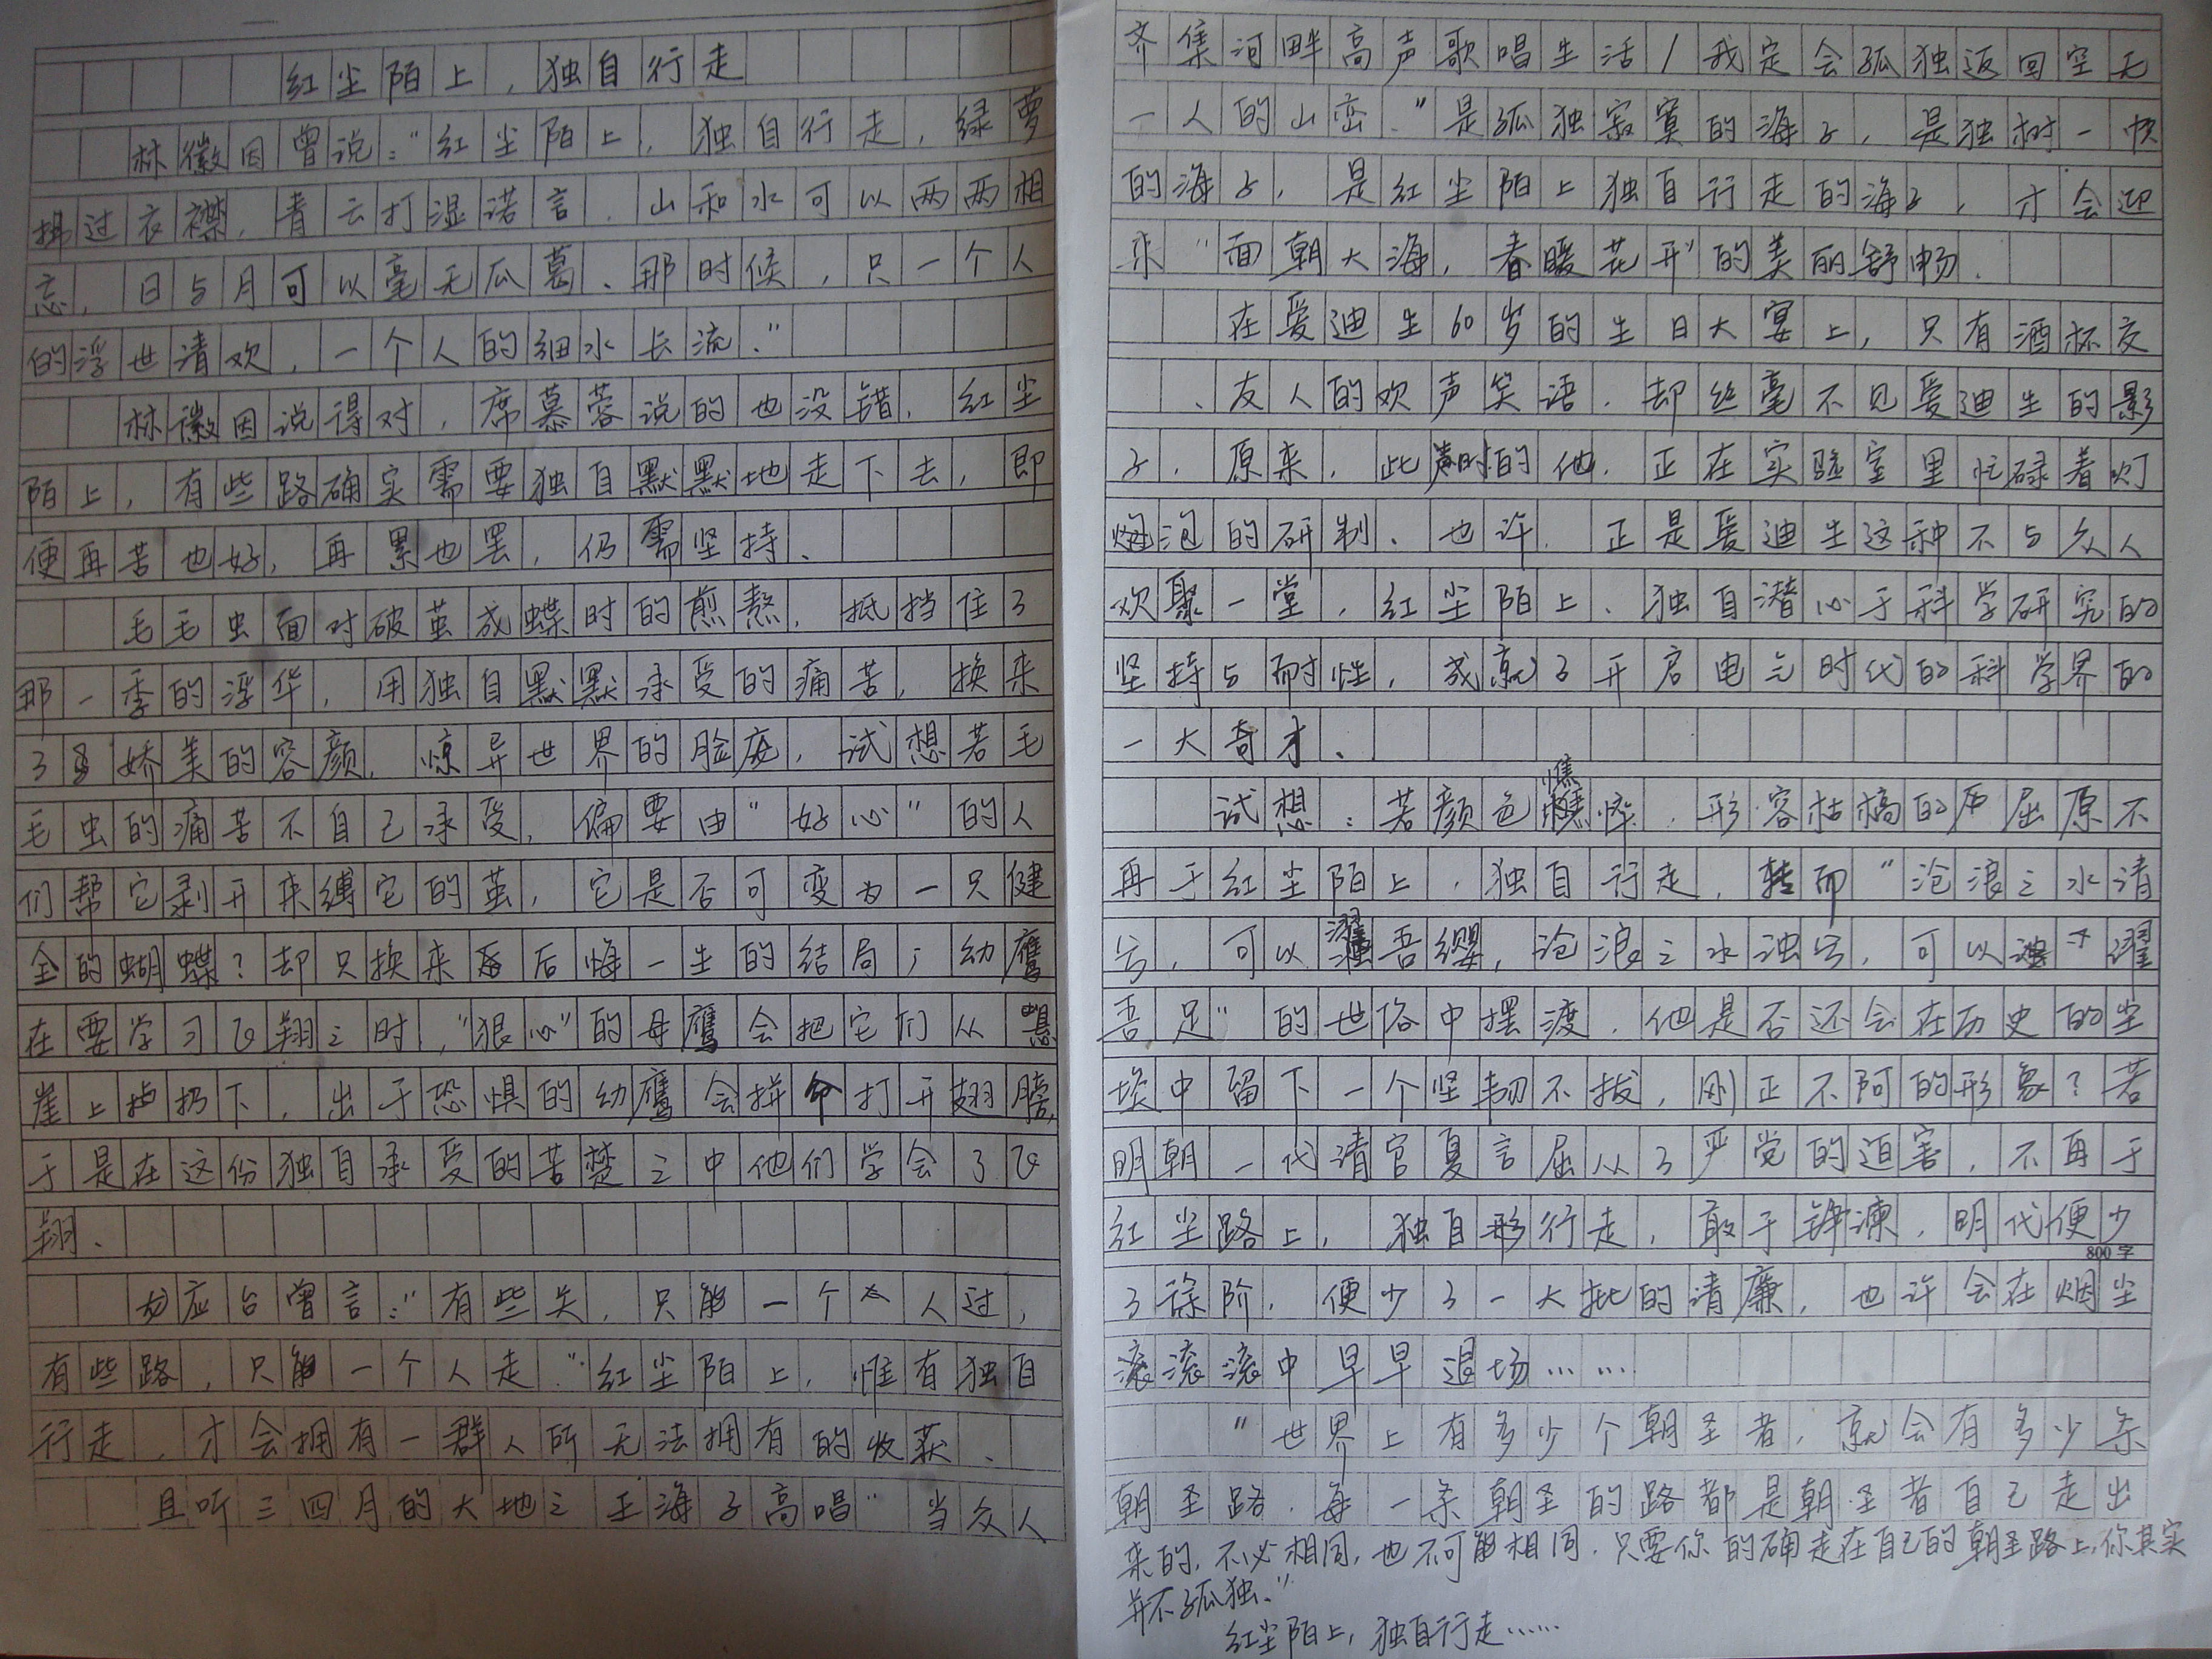 红尘陌上，独自行走
林徽因曾说："红尘陌上，独自行走，绿萝
拂过衣襟，青云打湿诺言．山和水可以两两相
忘，日与月可以毫无瓜葛．那时候，只一个人
的浮世清欢，一个人的细水长流．"
林徽因说得对，席慕蓉说的也没错．红尘
陌上，有些路确实需要独自默默地走下去，即
便再苦也好，再累也罢，仍需坚持．
毛毛虫面对破茧成蝶时的煎熬．抵挡住了
那一季的浮华，用独自默默承受的痛苦，换来
了娇美的容颜．惊异世界的脸庞，试想若毛
毛虫的痛苦不自己承受，偏要由"好心"的人
们帮它剥开束缚它的茧，它是否可变为一只健
全的蝴蝶？却只换来后悔一生的结局；幼鹰
在要学习飞翔之时，"狠心"的母鹰会把它们从悬
崖上扔下，出于恐惧的幼鹰会拼命打开翅膀，
于是在这份独自承受的苦楚之中他们学会了飞
翔．
应台曾言："有些关，只能一个人过，
有些路，只能一个人走．"红尘陌上，惟有独自
行走，才会拥有一群人所无法拥有的收获．
且听三四月的大地之王海子高唱"当众人
齐集河畔高声歌唱生活/我定会孤独返回空无
一人的山峦．"是孤独寂寞的海子，是独树一帜
的海子，是红尘陌上独自行走的海子，才会迎
来"面朝大海，春暖花开"的美丽舒畅．
在爱迪生60岁的生日大宴上，只有酒杯交
、友人的欢声笑语．却丝毫不见爱迪生的影
子．原来，此时的他．正在实验室里忙碌着灯
泡的研制．也许．正是爱迪生这种不与众人
欢聚一堂，红尘陌上、独自潜心于科学研究的
坚持与耐性，成就了开启电气时代的科学界的
一大奇才．
试想：若颜色憔悴．形容枯槁的屈原不
再于红尘陌上，独自行走，转而"沧浪之水清
兮，可以濯吾缨，沧浪之水浊兮，可以濯
吾足"的世俗中摆渡．他是否还会在历史的尘
埃中留下一个坚韧不拔，刚正不阿的形象？若
明朝一代清官夏言屈从了严党的迫害，不再于
红尘路上，独自行走，敢于铮谏．明代便少
800字
了徐阶．便少了一大批的清廉，也许会在烟尘
滚滚中早早退场……
"世界上有多少个朝圣者，就会有多少条
朝圣路．每一条朝圣的路都是朝圣者自己走出
来的，不必相同，也不可能相同．只要你的确走在自己的朝圣路上，你其实
并不孤独．"
红尘陌上，独自行走……